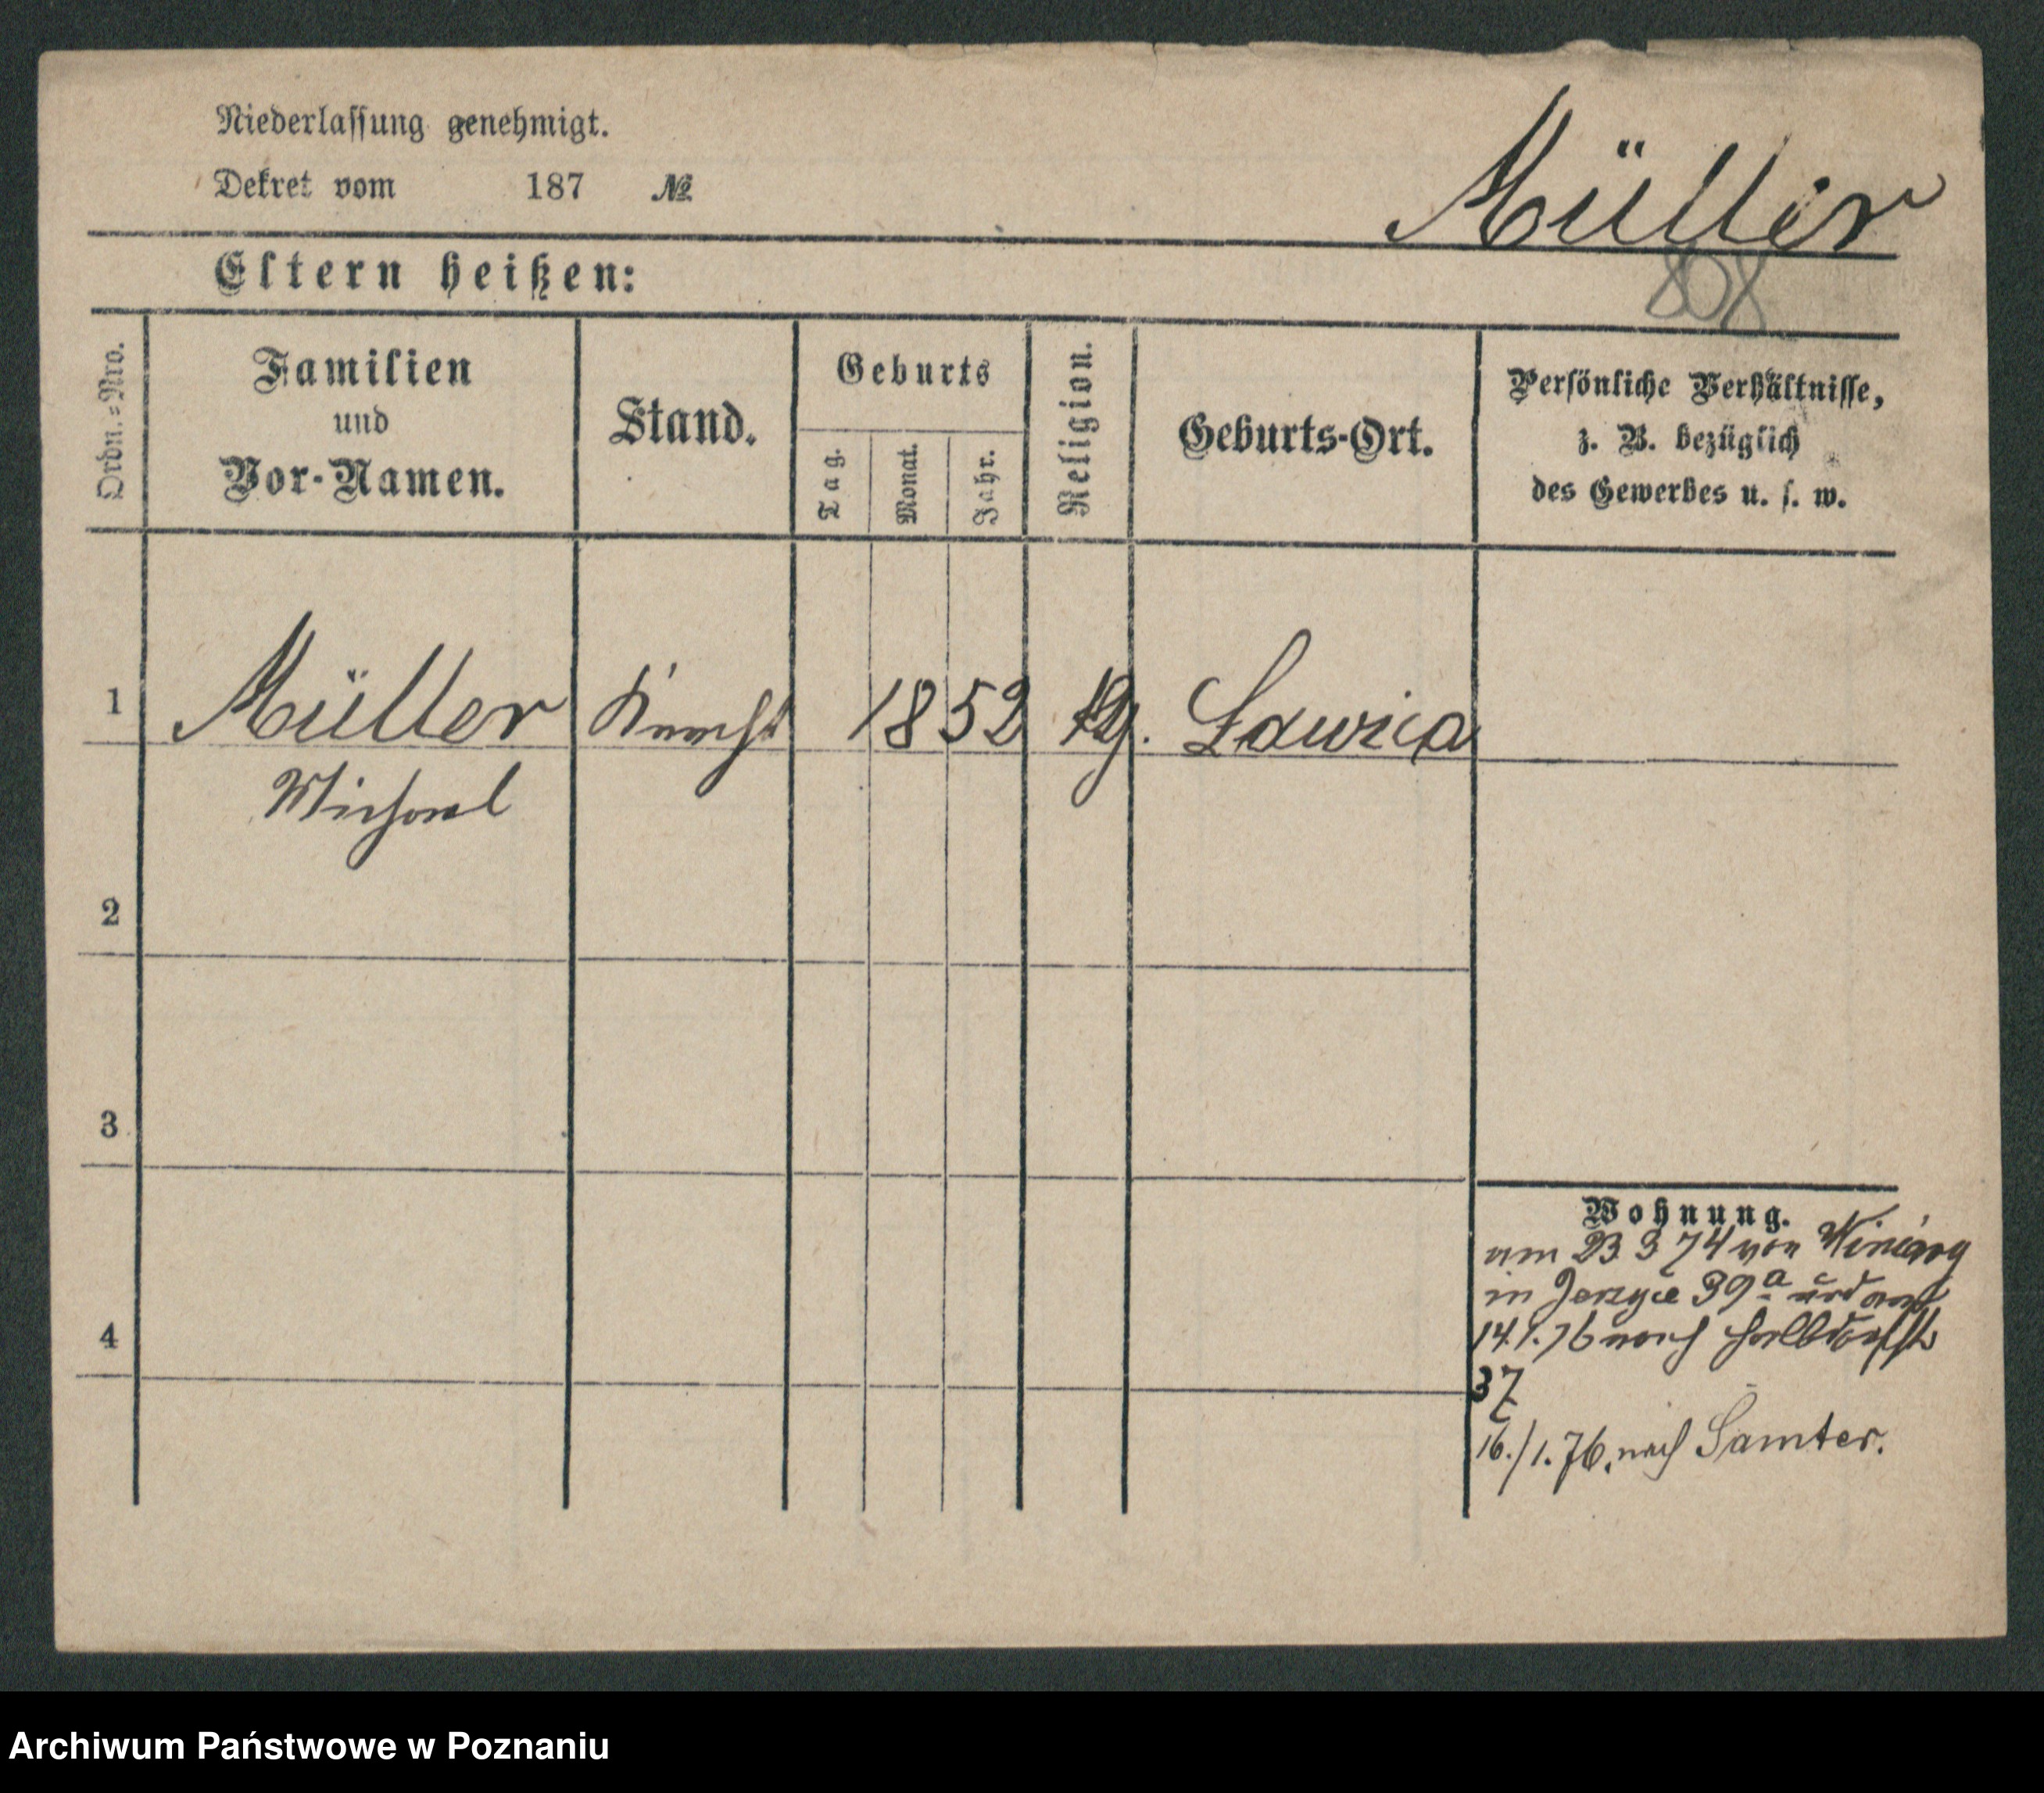 Niederlassung genehmigt.
Dekret vom 187 №
Müller
Eltern heißen:
808
Ordn.=Nro.
Familien
und
Vor-Namen.
Stand.
Geburts
Tag.
Monat.
Jahr.
Religion.
Geburts-Ort.
Persönliche Verhältnisse,
z. B. bezüglich
des Gewerbes u. s. w.
1 Müller Knecht 1852 Lawica
Michael
2
3
4
Wohnung.
am 23 3 74 von Winiary
in Jerzyce 39a und am
14.1.76 nach Halbdorfstr
37
16./1.76. nach Samter.
Archiwum Państwowe w Poznaniu